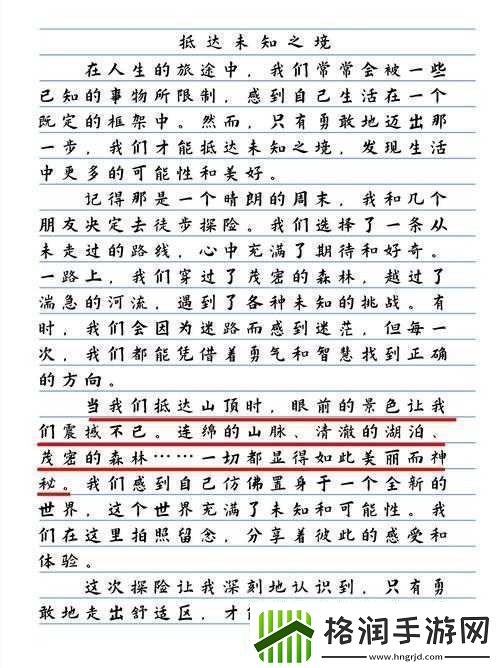 抵达未知之境
在人生的旅途中，我们常常会被一些
已知的事物所限制，感到自己生活在一个
既定的框架中。然而，只有勇敢地迈出那
一步，我们才能抵达未知之境，发现生活
中更多的可能性和美好。
记得那是一个晴朗的周末，我和几个
朋友决定去徒步探险。我们选择了一条从
未走过的路线，心中充满了期待和好奇。
一路上，我们穿过了茂密的森林，越过了
湍急的河流，遇到了各种未知的挑战。有
时，我们会因为迷路而感到迷茫，但每一
次，我们都能凭借着勇气和智慧找到正确
的方向。
当我们抵达山顶时，眼前的景色让我
们震撼不已。连绵的山脉、清澈的湖泊、
茂密的森林……一切都显得如此美丽而神
秘。我们感到自己仿佛置身于一个全新的
世界，这个世界充满了未知和可能性。我
们在这里拍照留念，分享着彼此的感受和
体验。
这次探险让我深刻地认识到，只有勇
敢地走出舒适区，才
格润手游网
www.hngrjd.com